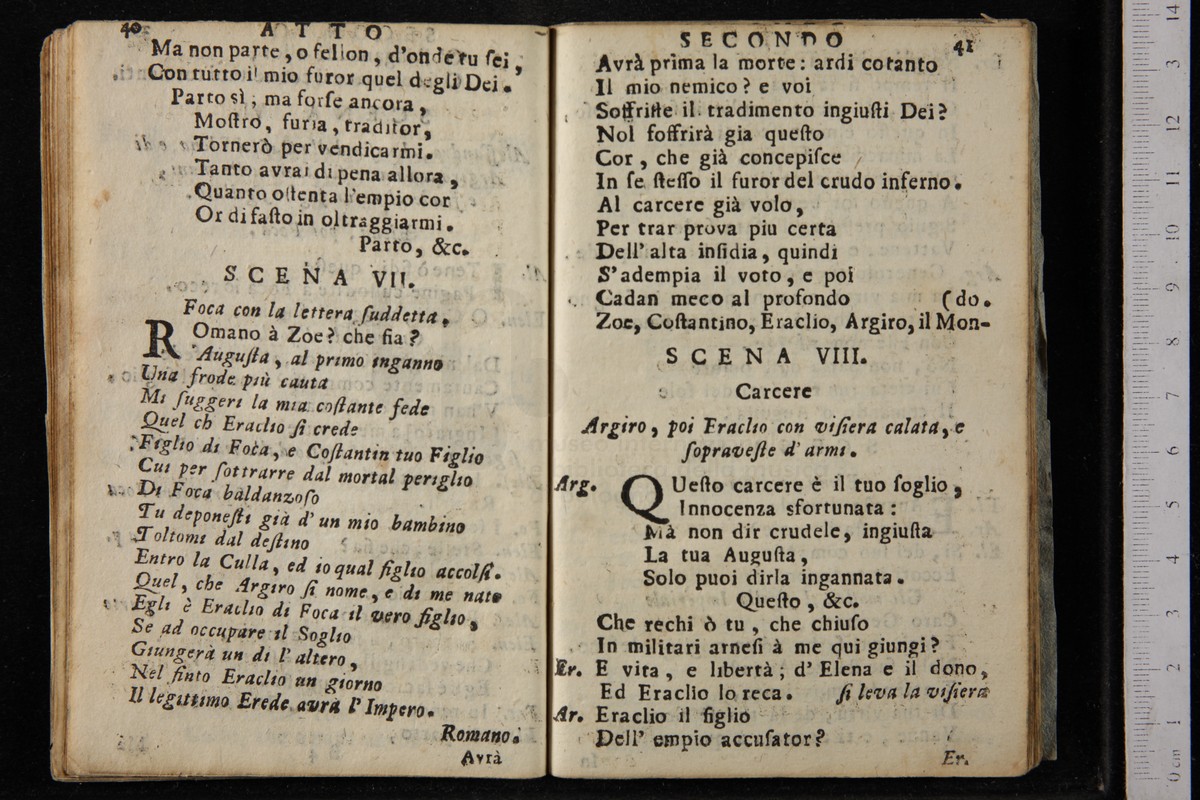 40 ATTO
Ma non parte, o fellon, d'onde tu ſei,
Con tutto il mio furor quel degli Dei.
Parto sì; ma forſe ancora,
Moſtro, furia, traditor,
Tornerò per vendicarmi.
Tanto avrai di pena allora,
Quanto oſtenta l'empio cor
Or di faſto in oltraggiarmi.
Parto, &c.
SCENA VII.
Foca con la lettera ſuddetta.
ROmano à Zoe? che fia?
Auguſta, al primo inganno
Una frode più cauta
Mi ſuggerì la mia coſtante fede
Quel ch Eraclio ſi crede
Figlio di Foca, e Coſtantin tuo Figlio
Cui per ſottrarre dal mortal periglio
Di Foca baldanzoſo
Tu deponeſti già d'un mio bambino
Toltomi dal deſtino
Entro la Culla, ed io qual figlio accolſi.
Quel, che Argiro ſi nome, e di me nato
Egli è Eraclio di Foca il vero figlio,
Se ad occupare il Soglio
Giungerà un dì l'altero,
Nel finto Eraclio un giorno
Il legittimo Erede avrà l'Impero.
Romano.
Avrà
SECONDO 41
Avrà prima la morte: ardì cotanto
Il mio nemico? e voi
Soffriſte il tradimento ingiuſti Dei?
Nol ſoffrirà gia queſto
Cor, che già concepiſce
In ſe ſteſſo il furor del crudo inferno.
Al carcere già volo,
Per trar prova piu certa
Dell' alta inſidia, quindi
S'adempia il voto, e poi
Cadan meco al profondo (do.
Zoe, Coſtantino, Eraclio, Argiro, il Mon-
SCENA VIII.
Carcere
Argiro, poi Eraclio con viſiera calata, e
ſopraveſte d'armi.
Arg. QUeſto carcere è il tuo ſoglio,
Innocenza sfortunata:
Mà non dir crudele, ingiuſta
La tua Auguſta,
Solo puoi dirla ingannata.
Queſto, &c.
Che rechi ò tu, che chiuſo
In militari arneſi à me qui giungi?
Er. E vita, e libertà; d'Elena e il dono,
Ed Eraclio lo reca. ſi leva la viſiera
Ar. Eraclio il figlio
Dell' empio accuſator?
Er.